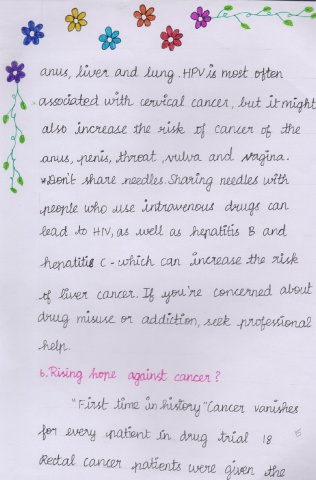 anus, liver and lung. HPV is most often
associated with cervical cancer, but it might
also increase the risk of cancer of the
anus, penis, throat, vulva and vagina.
*Don't share needles. Sharing needles with
people who use intravenous drugs can
lead to HIV, as well as hepatitis B and
hepatitis C - which can increase the risk
of liver cancer. If you're concerned about
drug misuse or addiction, seek professional
help.
6. Rising hope against cancer?
"First time in history" Cancer vanishes
for every patient in drug trial 18
Rectal cancer patients were given the